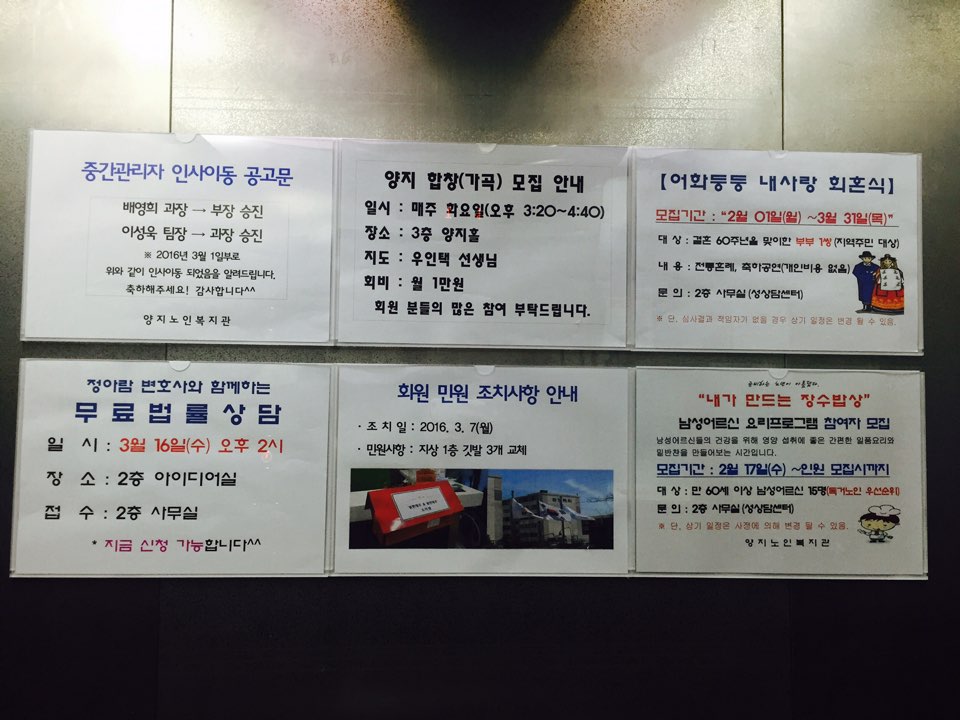 중간관리자 인사이동 공고문
배영희 과장 → 부장 승진
이성욱 팀장 → 과장 승진
※ 2016년 3월 1일부로
위와 같이 인사이동 되었음을 알려드립니다.
축하해주세요! 감사합니다^^
양지노인복지관
양지 합창(가곡) 모집 안내
일시 : 매주 화요일(오후 3:20~4:40)
장소 : 3층 양지홀
지도 : 우인택 선생님
회비 : 월 1만원
회원 분들의 많은 참여 부탁드립니다.
【어화둥둥 내사랑 회혼식】
모집기간 : "2월 01일(월) ~3월 31일(목)"
대상 : 결혼 60주년을 맞이한 부부 1쌍(지역주민 대상)
내용 : 전통혼례, 축하공연(개인비용 없음)
문의 : 2층 사무실(성상담센터)
※ 단, 심사결과 적임자가 없을 경우 상기 일정은 변경 될 수 있음.
정아람 변호사와 함께하는
무료법률상담
일 시 : 3월 16일(수) 오후 2시
장 소 : 2층 아이디어실
접 수 : 2층 사무실
* 지금 신청 가능합니다^^
회원 민원 조치사항 안내
· 조치일 : 2016. 3. 7(월)
· 민원사항 : 지상 1층 깃발 3개 교체
"내가 만드는 장수밥상"
남성어르신 요리프로그램 참여자 모집
남성어르신들의 건강을 위해 영양 섭취에 좋은 간편한 일품요리와
밑반찬을 만들어보는 시간입니다.
모집기간 : 2월 17일(수) ~인원 모집시까지
대상 : 만 60세 이상 남성어르신 15명(독거노인 우선순위)
문의 : 2층 사무실(성상담센터)
※ 단, 상기 일정은 사정에 의해 변경 될 수 있음.
양지노인복지관